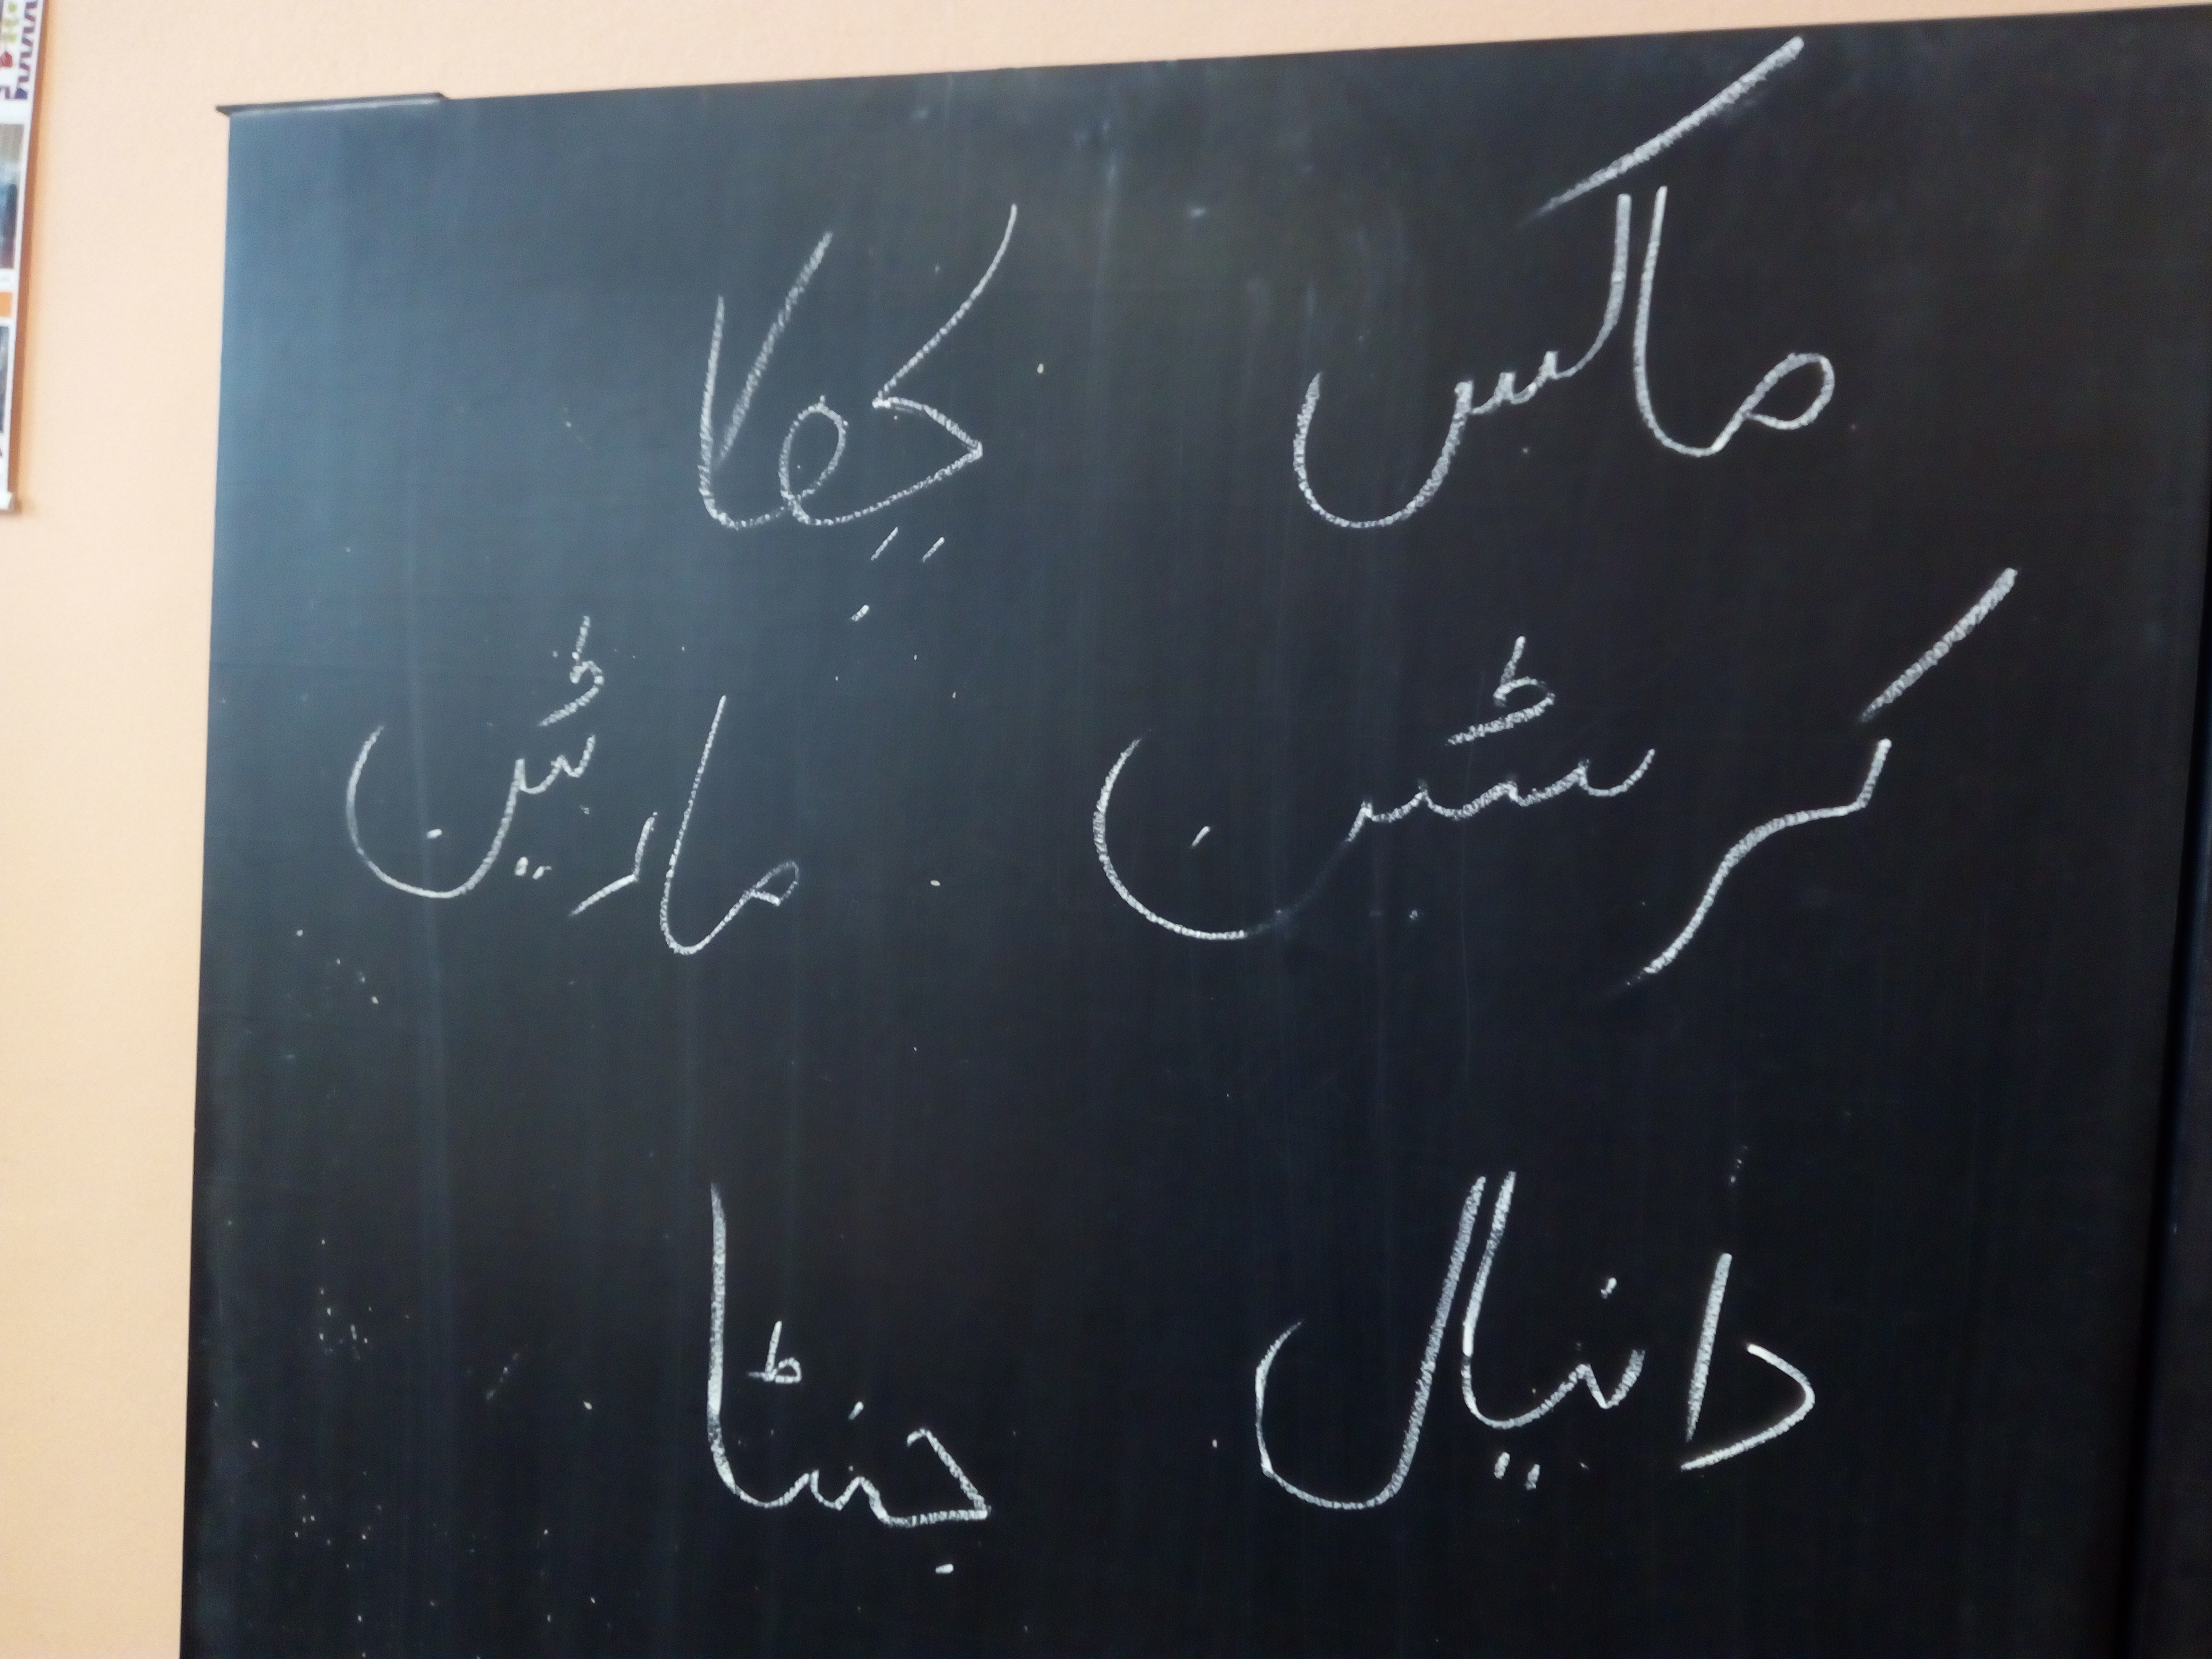 ماکس
کرسٹین مارٹین
دانیال جنٹا